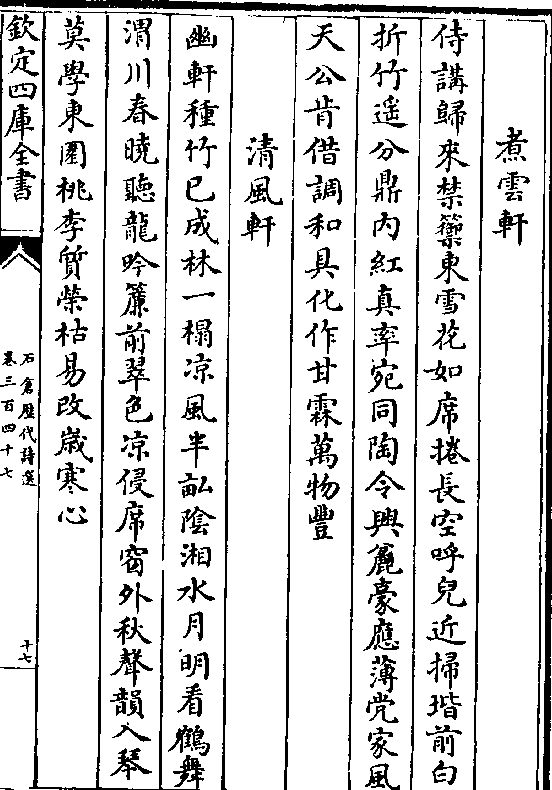 煮雲軒
侍講歸來禁籞東雪花如席捲長空呼兒近掃堦前白
折竹遥分鼎内紅真率宛同陶令興麄豪應薄党家風
天公肯借調和具化作甘霖萬物豐
清風軒
幽軒種竹已成林一榻凉風半畝陰湘水月明看鶴舞
渭川春曉聽龍吟簾前翠色凉侵席窗外秋聲韻入琴
莫學東園桃李質榮枯易改歲寒心
欽定四庫全書
石倉歷代詩選
卷三百四十七
十七